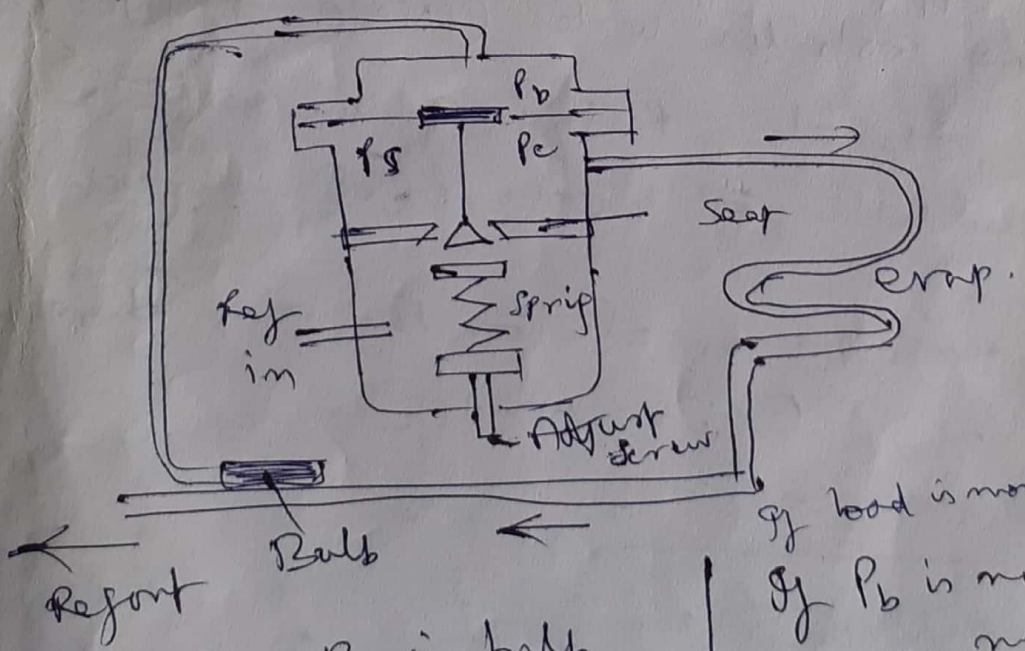 Pb
Ps
Pe
Seat
evap.
Ref
in
Spring
Adjust
screw
Bulb
Ref out
If load is mo
If Pb is m